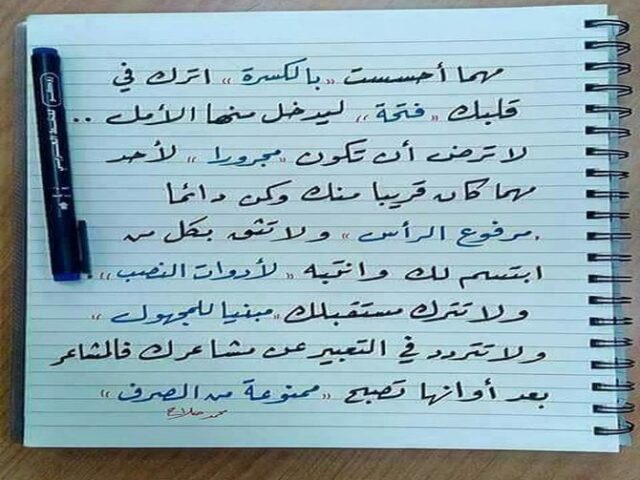 مهما أحسست "بالكسرة" اترك في
قلبك "فتحة" ليدخل منها الأمل ..
لا ترض أن تكون "مجرورا" لأحد
مهما كان قريبا منك وكن دائما
"مرفوع الرأس" ولا تثق بكل من
ابتسم لك وانتبه "لأدوات النصب".
ولا تترك مستقبلك "مبنيا للمجهول"
ولا تتردد في التعبير عن مشاعرك فالمشاعر
بعد أوانها تصبح "ممنوعة من الصرف"
محمد صلاح